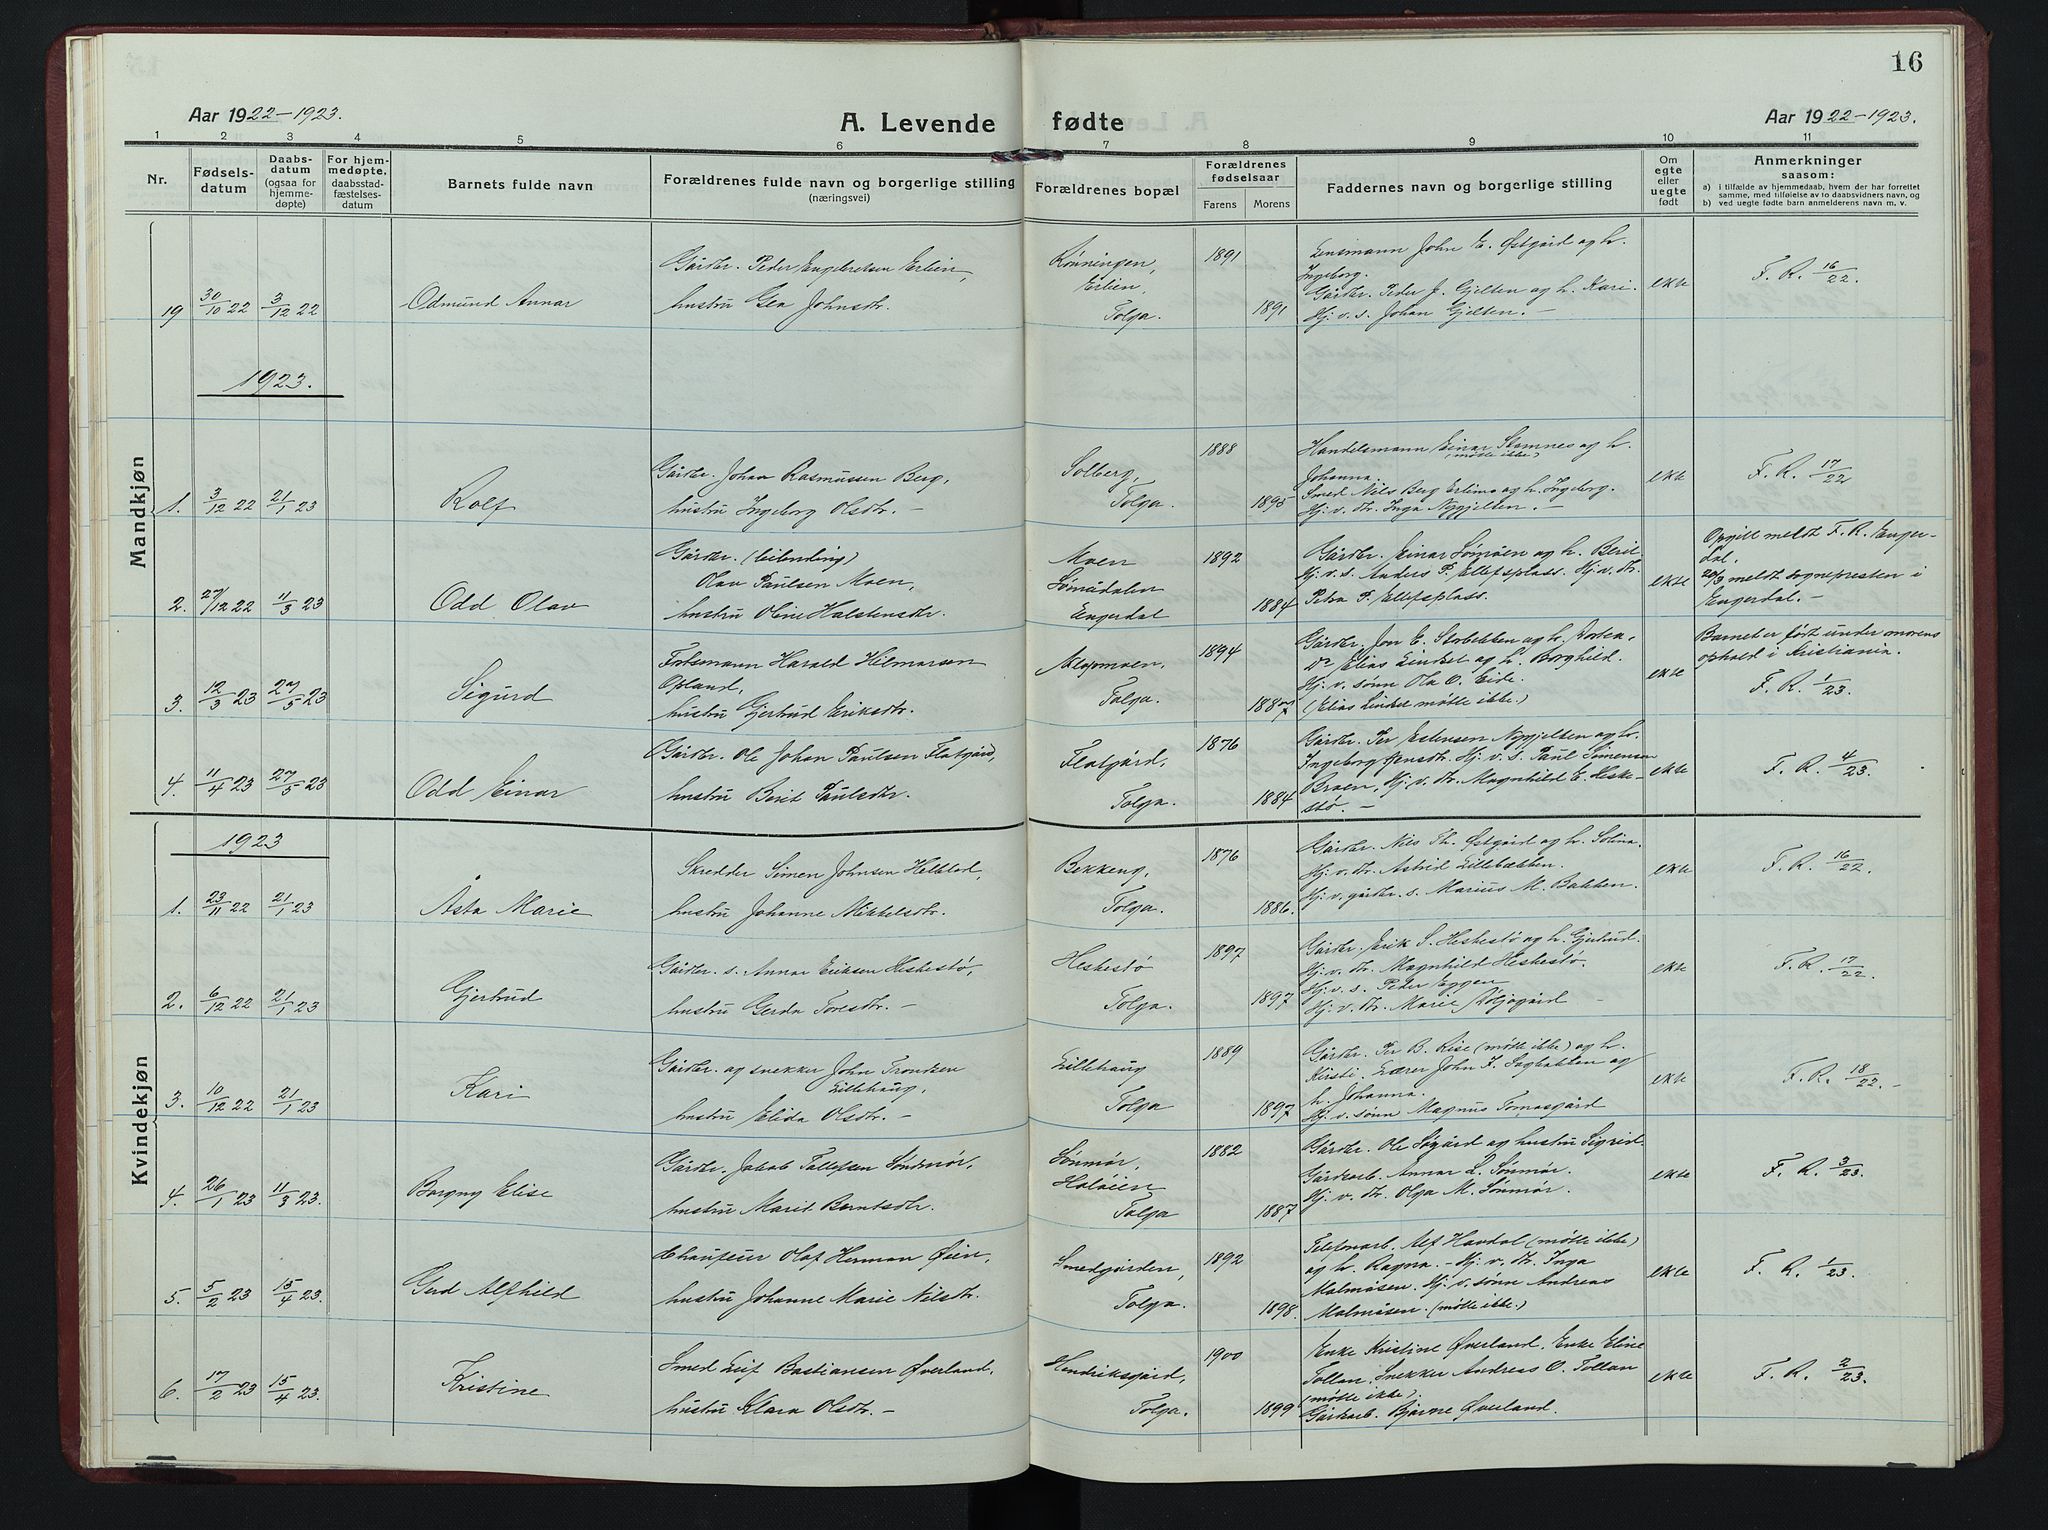 16
Aar 1922-1923.
A. Levende fødte
Aar 1922-1923.
1 2 3 4 5 6 7 8 9 10 11
Nr.
Fødsels-
datum
Daabs-
datum
(ogsaa for
hjemme-
døpte)
For hjem-
medøpte,
daabsstad-
fæstelses-
datum
Barnets fulde navn
Forældrenes fulde navn og borgerlige stilling
(næringsvei)
Forældrenes bopæl
Forældrenes
fødselsaar
Farens Morens
Faddernes navn og borgerlige stilling
Om
egte
eller
uegte
født
Anmerkninger
saasom:
a) i tilfælde av hjemmedaab, hvem der har forrettet
samme, med tilføielse av to daabsvidners navn, og
b) ved uegte fødte barn anmelderens navn m. v.
Mandkjøn
19 30/10 22 3/12 22
Odmund Annar
Gårdbr. Peder Engebretsen Erlien,
hustru Gea Johnsdtr.
Rønningen,
Erlien,
Tolga.
1891
1891
Lensmann John E. Østgård og h.
Ingeborg.
Gårdbr. Peder J. Gjelten og h. Kari.
Hj. v. s. Johan Gjelten. -
ekte
F. R. 16/22.
1923.
1. 3/12 22 21/1 23
Rolf
Gårdbr. Johan Rasmussen Berg,
hustru Ingeborg Olsdtr. -
Solberg,
Tolga.
1888
1895
Handelsmann Einar Stamnes og h.
(møtte ikke)
Johanna.
Smed Nils Berg Erlimo og h. Ingeborg.
Hj. v. dtr. Inga Nygjelten. -
ekte
F. R. 17/22
2. 27/12 22 11/3 23
Odd Olav
Gårdbr. (leilending)
Olav Paulsen Moen,
hustru Oline Halstensdtr.
Moen
Sømådalen
Engerdal
1892
1884
Gårdbr. Einar Sømåen og h. Berit.
Hj. v. s. Anders P. Ellefsplass. Hj. v. dtr.
Petra P. Ellefsplass.
ekte
Opgitt meldt F. R. Enger-
dal.
20/3 meldt sognepresten i
Engerdal. -
3. 12/3 23 27/5 23
Sigurd
Forstmann Harald Hilmarsen
Opland,
hustru Gjertrud Eriksdtr.
Tolga.
1894
Gårdbr. Jon E. Storbekken og h.
Do Elias Linket og h. Borghild.
Hj. v. sønn Ola O. Eide.
(Elias Linket møtte ikke.)
ekte
Barnet er født under morens
ophold i Kristiania.
F. R. 1/23.
4. 11/4 23 27/5 23
Odd Einar
Gårdbr. Ole Johan Paulsen Flatgård,
hustru Berit Paulsdtr.
Flatgård,
Tolga.
1876
1884
Gårdbr. Per Estensen Nygjelten og h.
Ingeborg Jensdtr. Hj. v. s. Paul Simensen
Braen, Hj. v. dtr. Magnhild E. Heske-
stø. -
ekte
F. R. 4/23.
Kvindekjøn
1923
1. 23/11 22 21/1 23
Åsta Marie
Skredder Simen Johnsen Helblad,
hustru Johanne Mikkelsdtr.
Bekkeng,
Tolga.
1876
1886.
Gårdbr. Nils Th. Østgård og h. Solina.
Hj. v. dtr. Astrid Lillebakken.
Hj. v. gårdbr. s. Marius M. Bakken.
ekte
F. R. 16/22.
2. 6/12 22 21/1 23
Gjertrud
Gårdbr. s. Annar Eriksen Heskestø,
hustru Gerda Toresdtr. -
Heskestø
Tolga.
1897
1897
Gårdbr. Erik S. Heskestø og h. Gjertrud.
Hj. v. dtr. Magnhild Heskestø.
Hj. v. s. Peder Eggen
Hj. v. dtr. Marie -
ekte
F. R. 17/22.
3. 10/12 22 21/1 23
Kari
Gårdbr. og snekker John Trondsen
Lillehaug,
hustru Elida Olsdtr. -
Lillehaug
Tolga
1889
1897
Gårdbr. Per B. Rise (møtte ikke) og h.
Kirsti. Lærer John J. Sagbakken og
h. Johanna.
Hj. v. sønn Magnus Tomasgård
ekte
F. R. 18/22. -
4. 26/1 23 11/3 23.
Borgny Elise
Gårdbr. Jakob Tollefsen Søndmør,
hustru Marit Berntsdtr.
Sønmør,
Holøien
Tolga
1882
1887
Gårdbr. Ole Søgård og hustru Sigrid.
Gårdsarb. Annar L. Sønmør.
Hj. v. dtr. Olga M. Sønmør.
ekte
F. R. 3/23.
5. 5/2 23 15/4 23.
Gerd Alfhild
Chaufeur Olaf Herman Øien,
hustru Johanne Marie Nilsdtr.
Smedgården,
Tolga.
1892
1898.
Telefonarb. Alf Havdal (møtte ikke)
og h. Ragna. - Hj. v. dtr. Inga
Malmåsen. Hj. v. sønn Andreas
Malmåsen. (møtte ikke.)
ekte
F. R. 1/23.
6. 17/2 23 15/4 23.
Kristine
Smed Leif Bastiansen Øverland,
hustru Klara Olsdtr. -
Hendriksgård,
Tolga.
1900
1899
Enke Kristine Øverland. Enke Eline
Tollan. Snekker Andreas O. Tollan
(møtte ikke).
Gårdsarb. Bjarne Øverland.
ekte
F. R. 2/23.